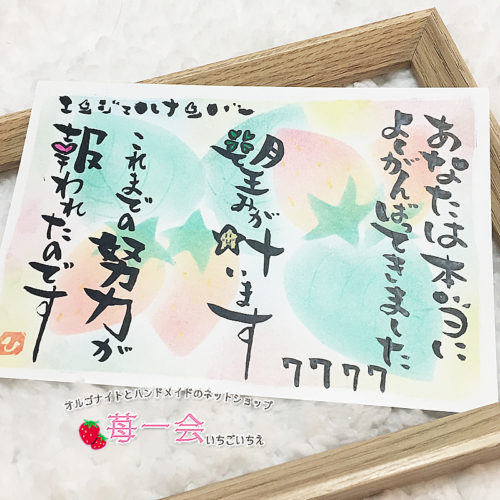 あなたは本当に
よくがんばってきました
望みが
叶います
7777
これまでの努力が
報われたのです
エンジェルナンバー
ひ
オルゴナイトとハンドメイドのネットショップ
苺一会
いちごいちえ